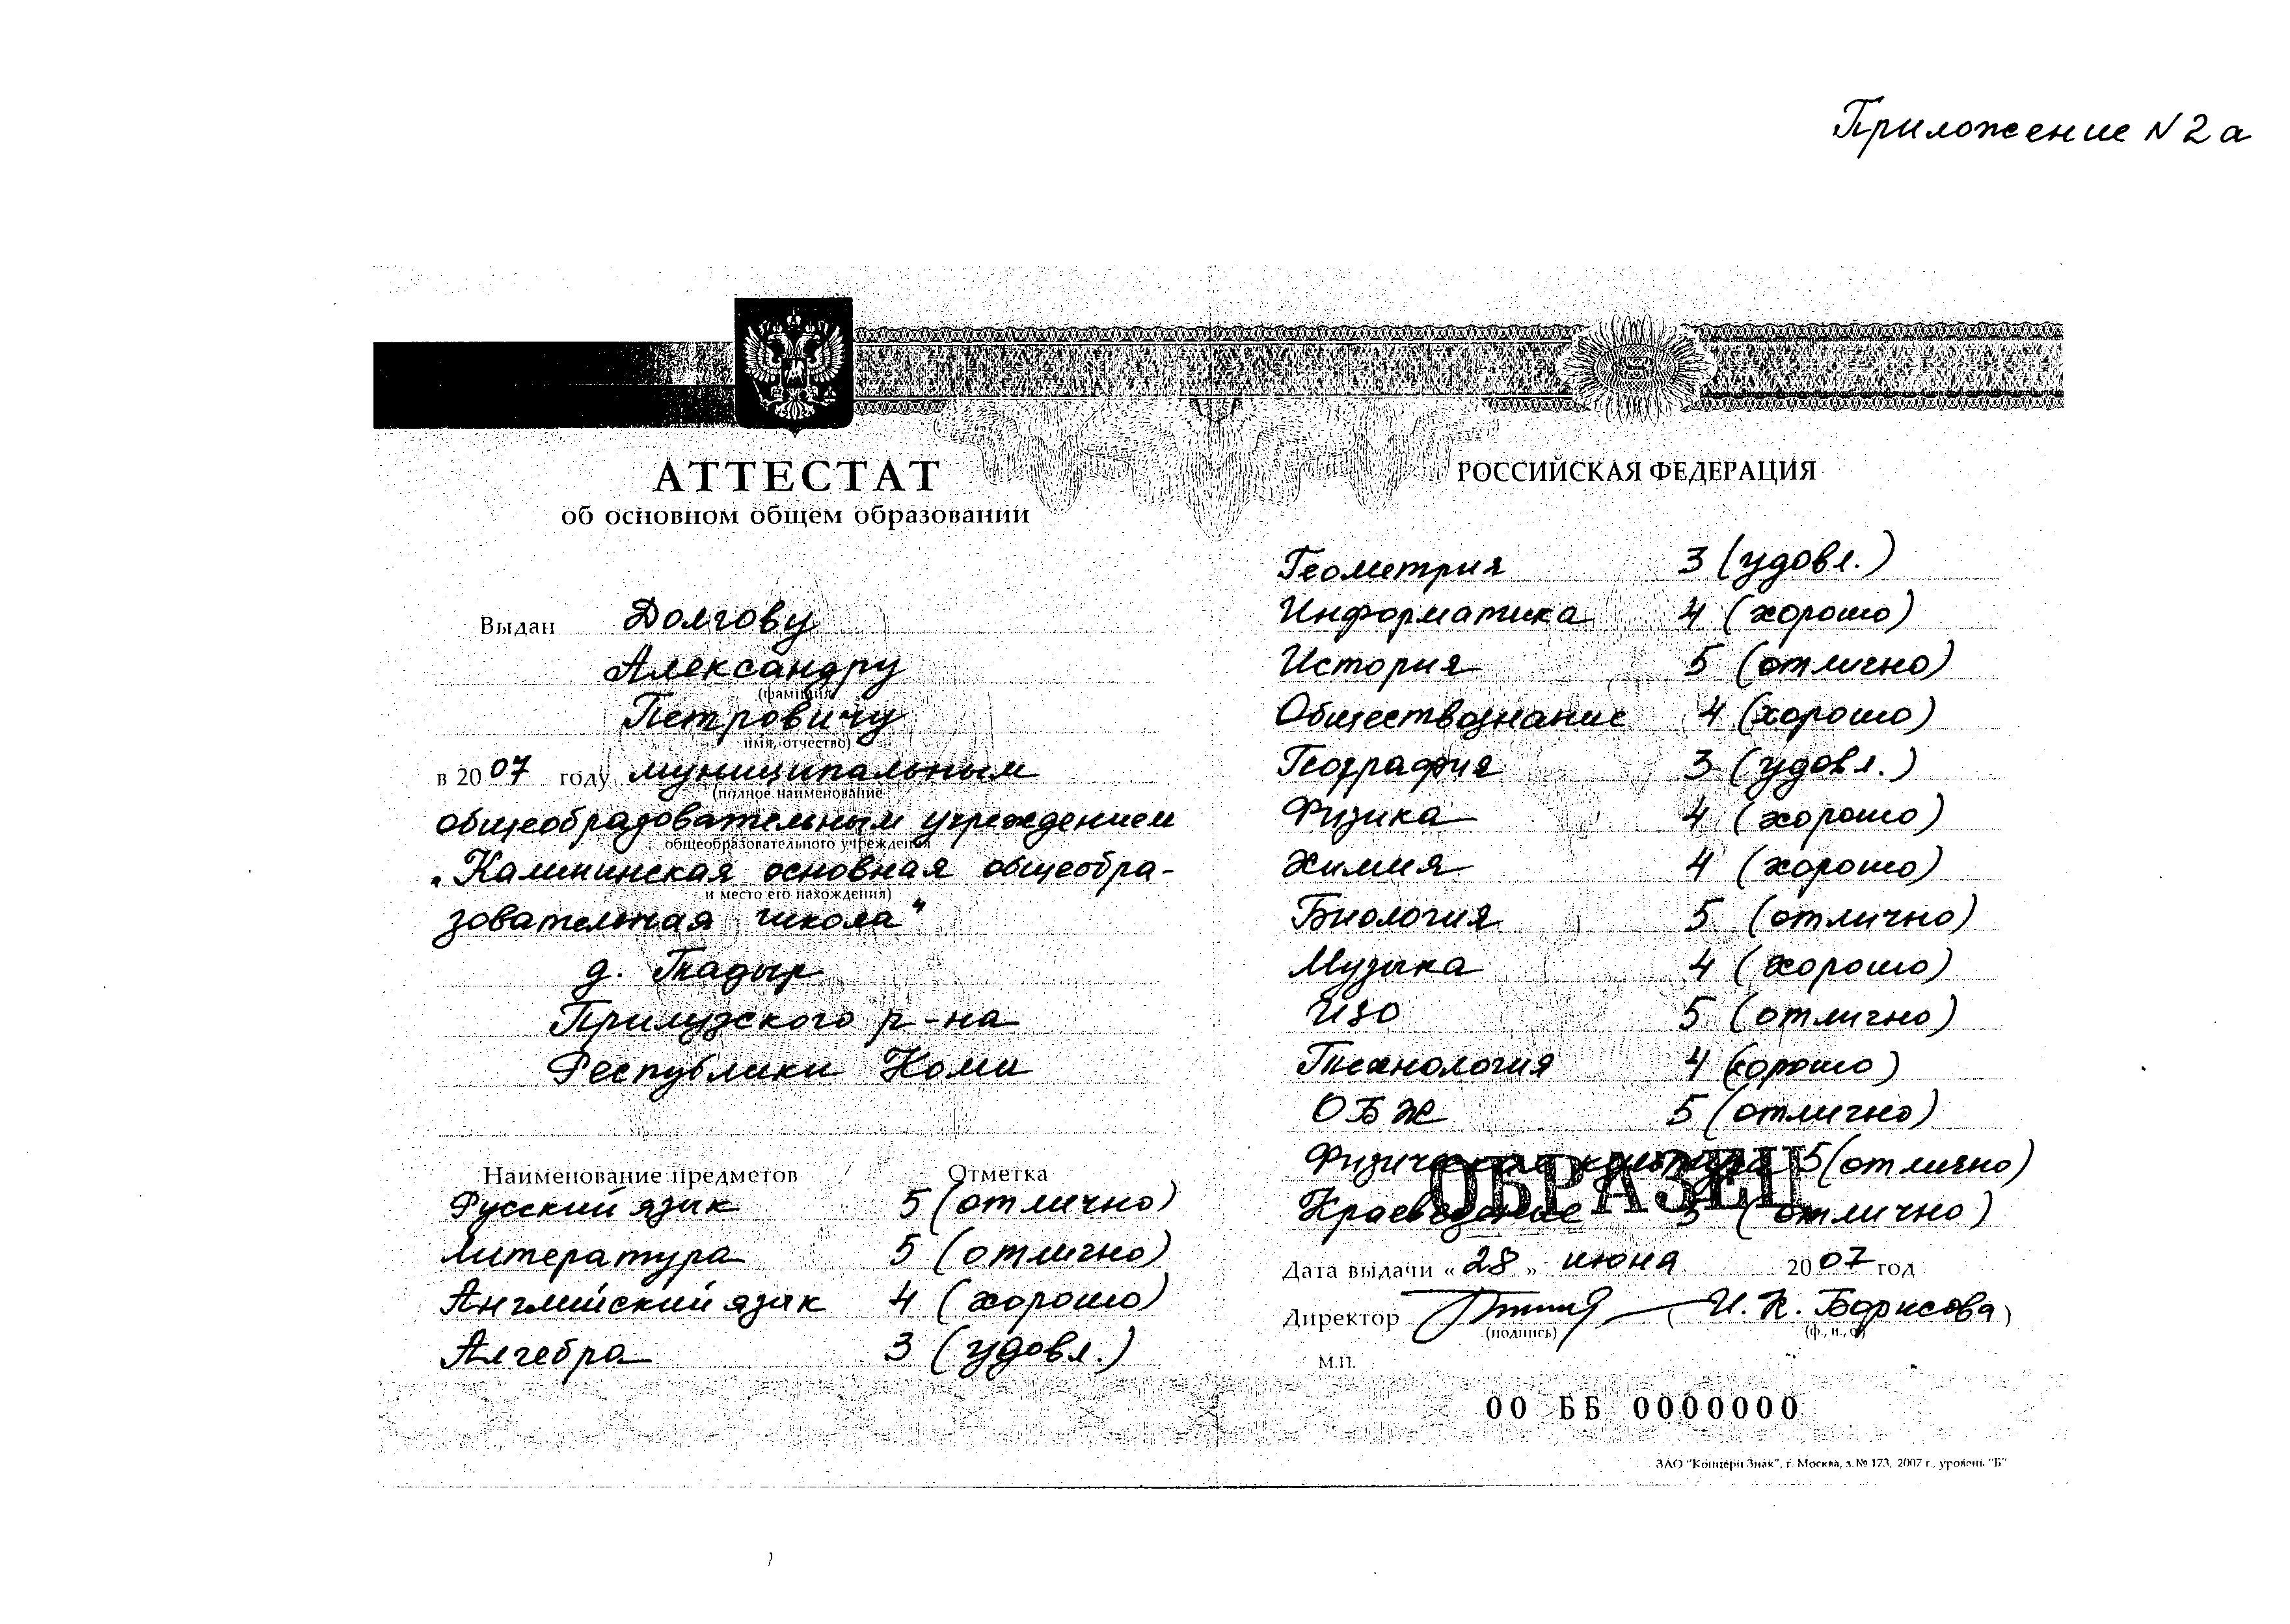 Приложение N 2 а
АТТЕСТАТ
об основном общем образовании
Выдан Долгову
Александру
(фамилия,
Петровичу
имя, отчество)
в 20 07 году муниципальным
(полное наименование
общеобразовательным учреждением
общеобразовательного учреждения
„Калининская основная общеобра-
и место его нахождения)
зовательная школа"
д.
Прилузского р-на
Республики Коми
Наименование предметов Отметка
Русский язык 5 (отлично)
литература 5 (отлично)
Английский язык 4 (хорошо)
Алгебра 3 (удовл.)
РОССИЙСКАЯ ФЕДЕРАЦИЯ
Геометрия 3 (удовл.)
Информатика 4 (хорошо)
История 5 (отлично)
Обществознание 4 (хорошо)
География 3 (удовл.)
Физика 4 (хорошо)
Химия 4 (хорошо)
Биология 5 (отлично)
Музыка 4 (хорошо)
ИЗО 5 (отлично)
Технология 4 (хорошо)
ОБЖ 5 (отлично)
Физическая культура 5 (отлично)
ОБРАЗЕЦ
Краеведение 5 (отлично)
Дата выдачи « 28 » июня 20 07 год
Директор ( И. К. Борисова )
(подпись) (ф., и., о)
М.П.
00 ББ 0000000
ЗАО "Концерн Знак", г. Москва, з. № 173, 2007 г., уровень "Б"